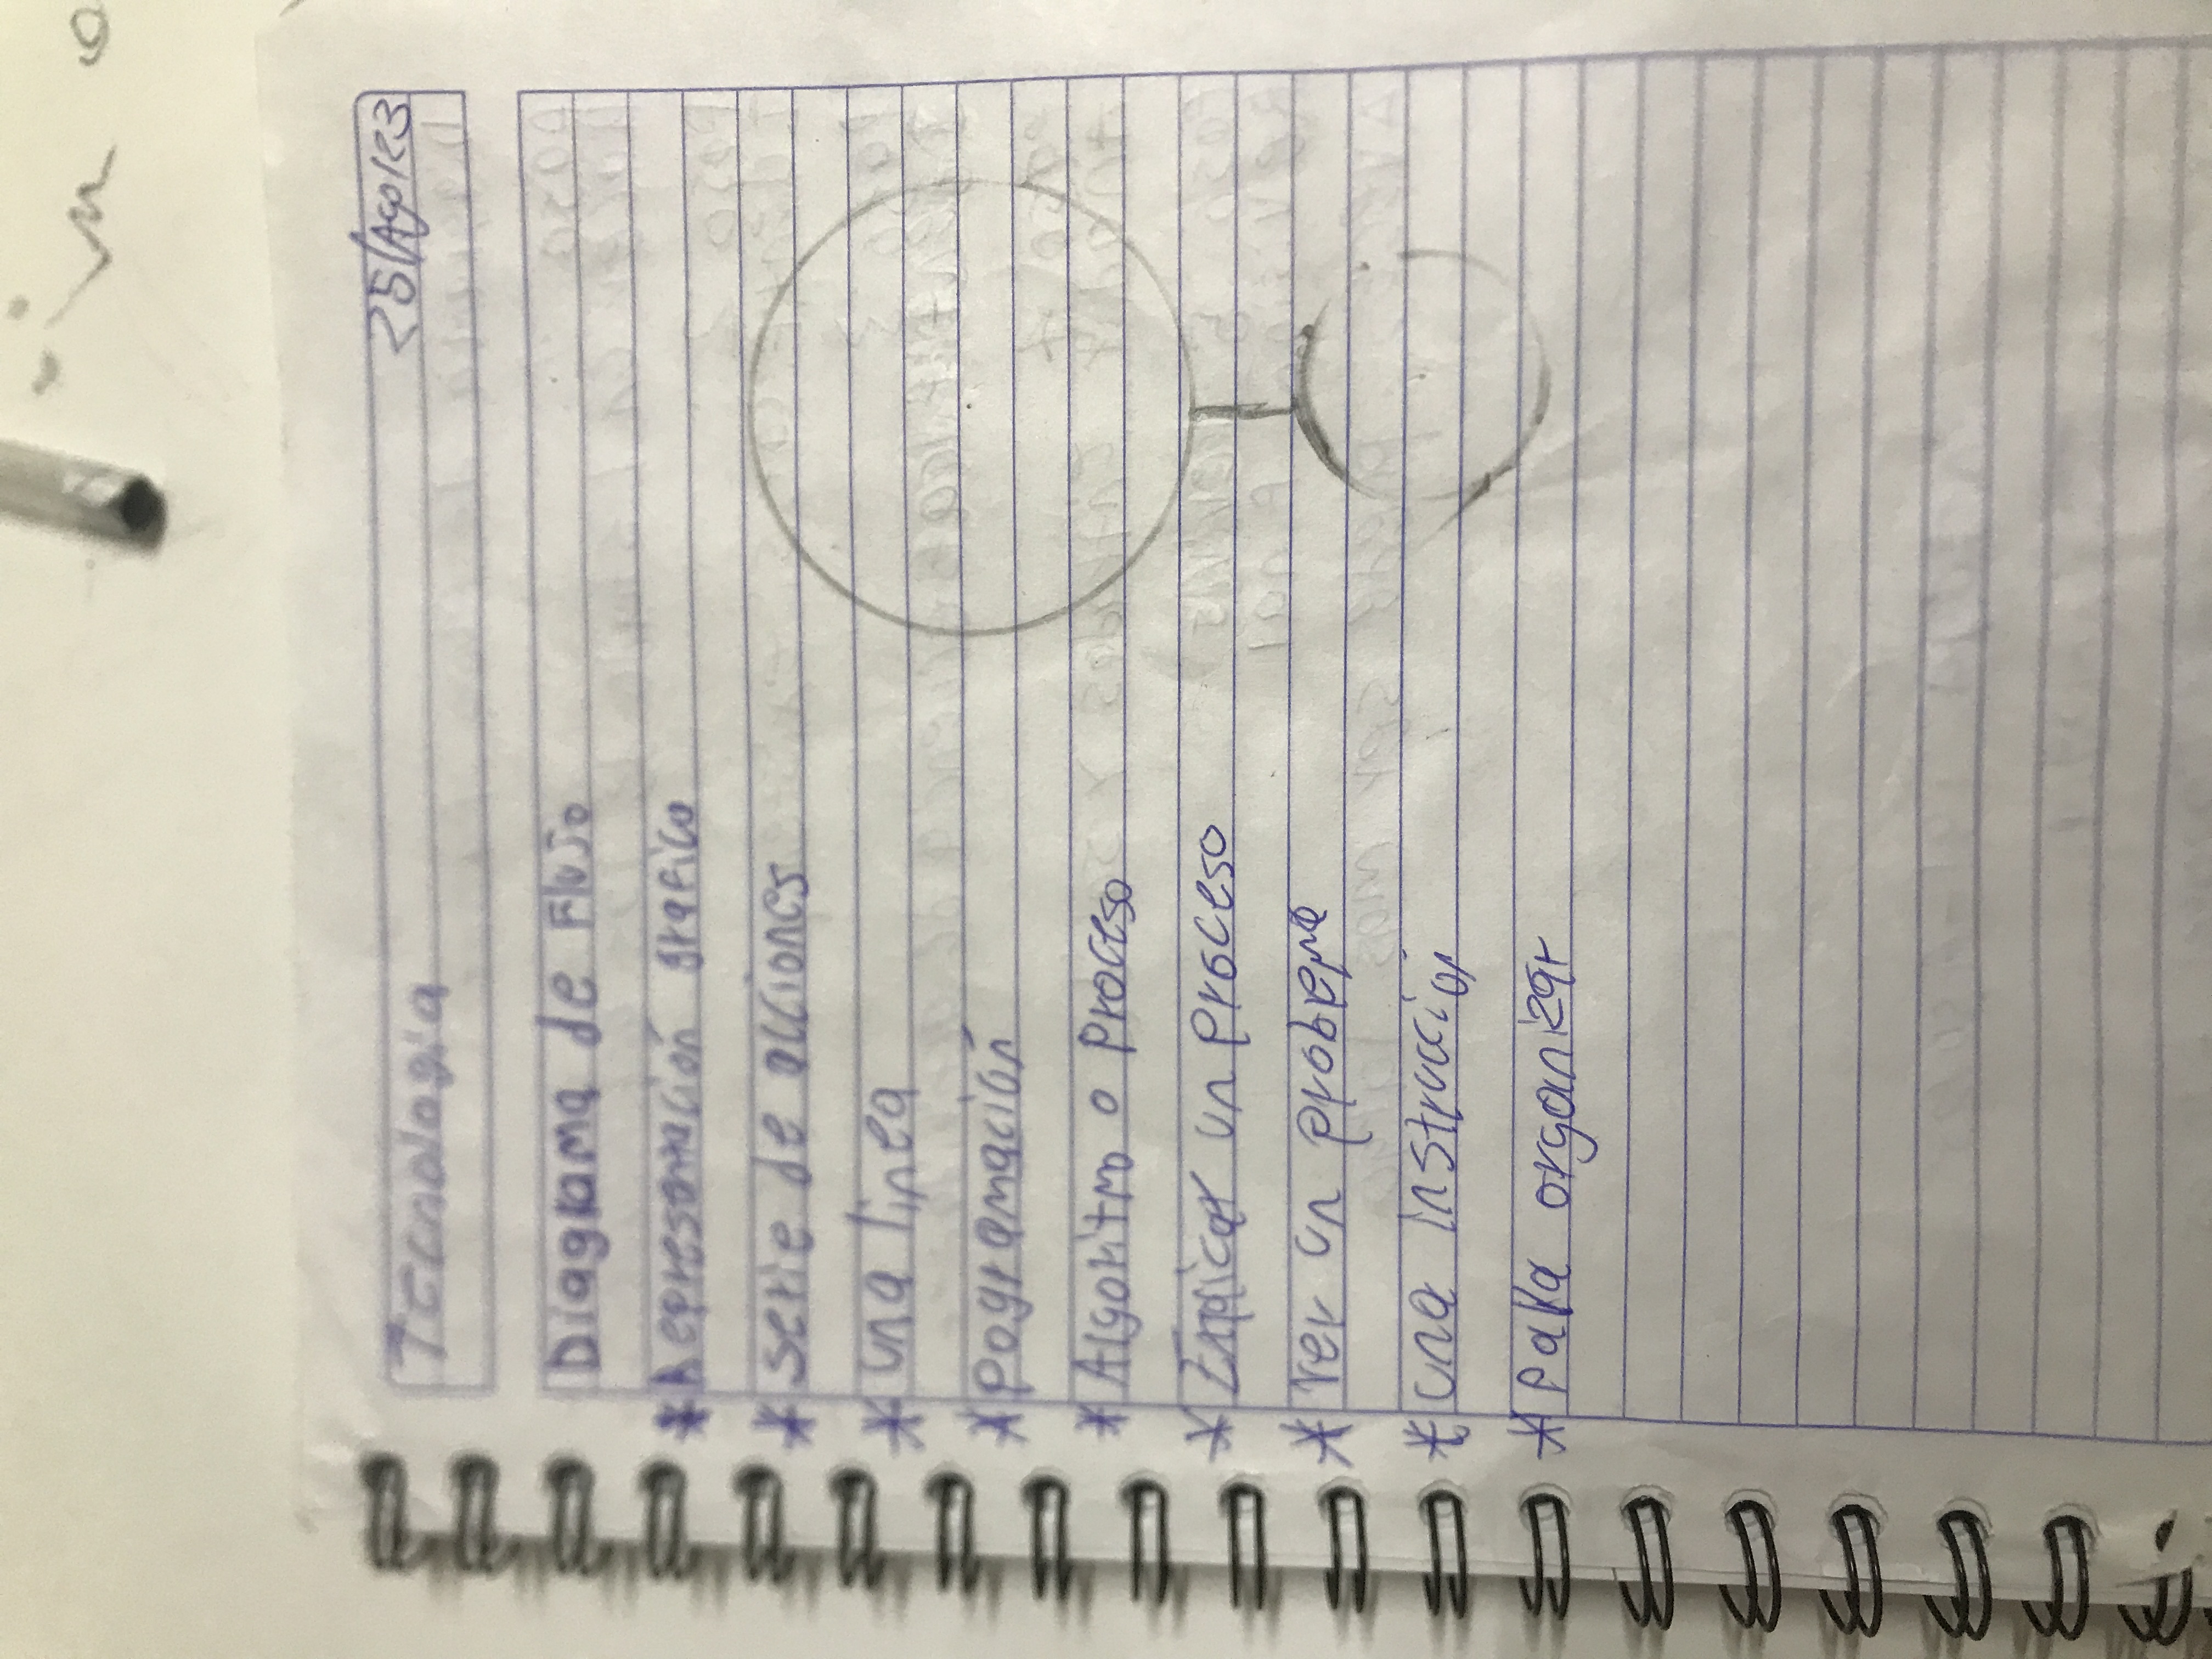 Tecnologia
25/Ago/23
Diagrama de Flujo
* Representación grafico
* serie de acciones
* una linea
* Pogramación
* Algoritmo o Proceso
* un Proceso
* Ver un problema
* una instrucción
* Para organizar